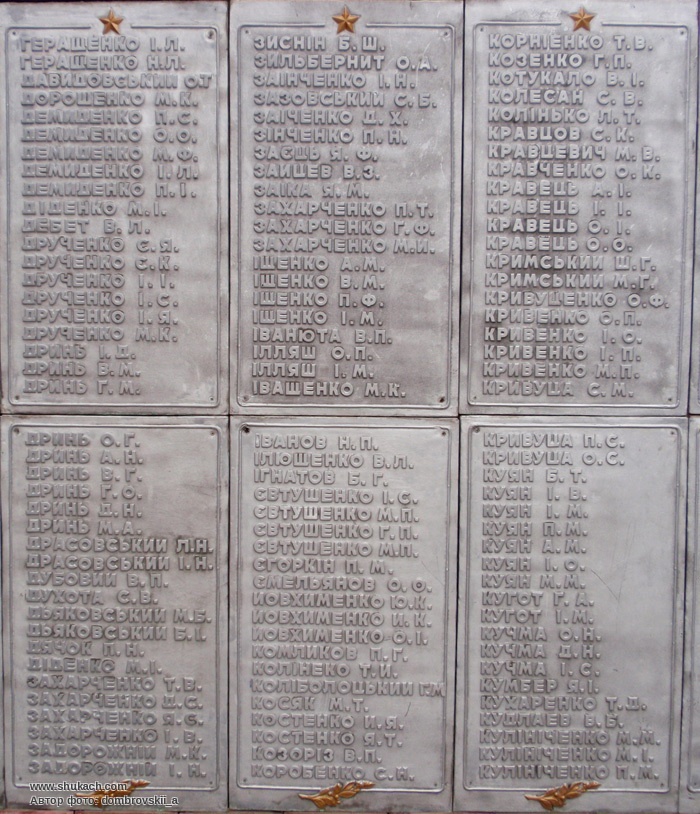 ГЕРАЩЕНКО І. Л.
ГЕРАЩЕНКО Н.Л.
ДАВИДОВСЬКИЙ О.Т
ДОРОШЕНКО М.К.
ДЕМИДЕНКО П.С.
ДЕМИДЕНКО О.О.
ДЕМИДЕНКО М.Ф.
ДЕМИДЕНКО І.Л.
ДЕМИДЕНКО П.І.
ДІДЕНКО М.І.
ДЕБЕТ В.Л.
ДРУЧЕНКО Є.Я.
ДРУЧЕНКО Є.К.
ДРУЧЕНКО І.І.
ДРУЧЕНКО І.С.
ДРУЧЕНКО І.Я.
ДРУЧЕНКО М.К.
ДРИНЬ І.Д.
ДРИНЬ В.М.
ДРИНЬ Г.М.
ДРИНЬ О.Г.
ДРИНЬ А.Н.
ДРИНЬ В.Г.
ДРИНЬ Г.О.
ДРИНЬ Д.Н.
ДРИНЬ М.А.
ДРАСОВСЬКИЙ Л.Н.
ДРАСОВСЬКИЙ І.Н.
ДУБОВИЙ В.П.
ДУХОТА С.В.
ДЬЯКОВСЬКИЙ М.Б.
ДЬЯКОВСЬКИЙ Б.І.
ДЯЧОК П.Н.
ДІДЕНКО М.І.
ЗАХАРЧЕНКО Т.В.
ЗАХАРЧЕНКО Д.С.
ЗАХАРЧЕНКО Я.Є.
ЗАХАРЧЕНКО І.В.
ЗАДОРОЖНІЙ М.К.
ЗАДОРОЖНІЙ І.Н.
ЗИСНІН Б.Ш.
ЗИЛЬБЕРНИТ О.А.
ЗАІНЧЕНКО І.Н.
ЗАЗОВСЬКИЙ С.Б.
ЗАІЧЕНКО Д.Х.
ЗІНЧЕНКО П.Н.
ЗАЄЦЬ Я.Ф.
ЗАИШЕВ В.З.
ЗАІКА Я.М.
ЗАХАРЧЕНКО П.Т.
ЗАХАРЧЕНКО Г.Ф.
ЗАХАРЧЕНКО М.И.
ІЩЕНКО А.М.
ІЩЕНКО В.М.
ІЩЕНКО П.Ф.
ІЩЕНКО І.М.
ІВАНЮТА В.П.
ІЛЛЯШ О.П.
ІЛЛЯШ І.М.
ІВАЩЕНКО М.К.
ІВАНОВ Н.П.
ІЛЮШЕНКО В.Л.
ІГНАТОВ Б.Г.
ЄВТУШЕНКО І.С.
ЄВТУШЕНКО М.П.
ЄВТУШЕНКО Г.П.
ЄВТУШЕНКО М.П.
ЄГОРКІН П.М.
ЄМЕЛЬЯНОВ О.О.
ЙОВХИМЕНКО Ю.К.
ЙОВХИМЕНКО И.К.
ЙОВХИМЕНКО О.І.
КОМЛИКОВ П.Г.
КОЛІНЕКО Т.И.
КОЛІБОЛОЦЬКИЙ Г.М
КОСЯК М.Т.
КОСТЕНКО И.Я.
КОСТЕНКО Я.Т.
КОЗОРІЗ В.П.
КОРОБЕНКО С.Н.
КОРНІЕНКО Т.В.
КОЗЕНКО Г.П.
КОТУКАЛО В.І.
КОЛЕСАН С.В.
КОЛІНЬКО Л.Т.
КРАВЦОВ С.К.
КРАВЦЕВИЧ М.В.
КРАВЧЕНКО О.К.
КРАВЕЦЬ А.І.
КРАВЕЦЬ І.І.
КРАВЕЦЬ О.І.
КРАВЕЦЬ О.О.
КРИМСЬКИЙ Ш.Г.
КРИМСЬКИЙ М.Г.
КРИВУЦЕНКО О.Ф.
КРИВЕНКО О.П.
КРИВЕНКО І.О.
КРИВЕНКО І.П.
КРИВЕНКО М.П.
КРИВУЦА С.М.
КРИВУЦА П.С.
КРИВУЦА О.С.
КУЯН Б.Т.
КУЯН І.В.
КУЯН І.М.
КУЯН П.М.
КУЯН А.М.
КУЯН І.О.
КУЯН М.М.
КУГОТ Г.А.
КУГОТ І.М.
КУЧМА О.Н.
КУЧМА Д.Н.
КУЧМА І.С.
КУМБЕР Я.І.
КУХАРЕНКО Т.Д.
КУДЛАЕВ В.Б.
КУЛІНІЧЕНКО М.М.
КУЛІНІЧЕНКО М.І.
КУЛІНІЧЕНКО П.М.
www.shukach.com
Автор фото: dombrovskii_a